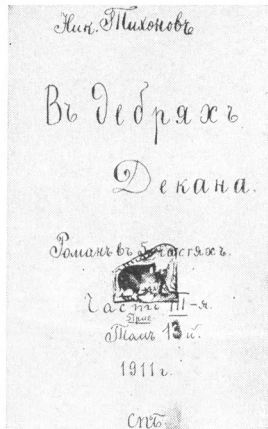 Ник. Тихоновъ
Въ дебряхъ
Декана.
Романъ въ частяхъ.
Часть III-я.
Томъ 13й.
1911 г.
СПБ.